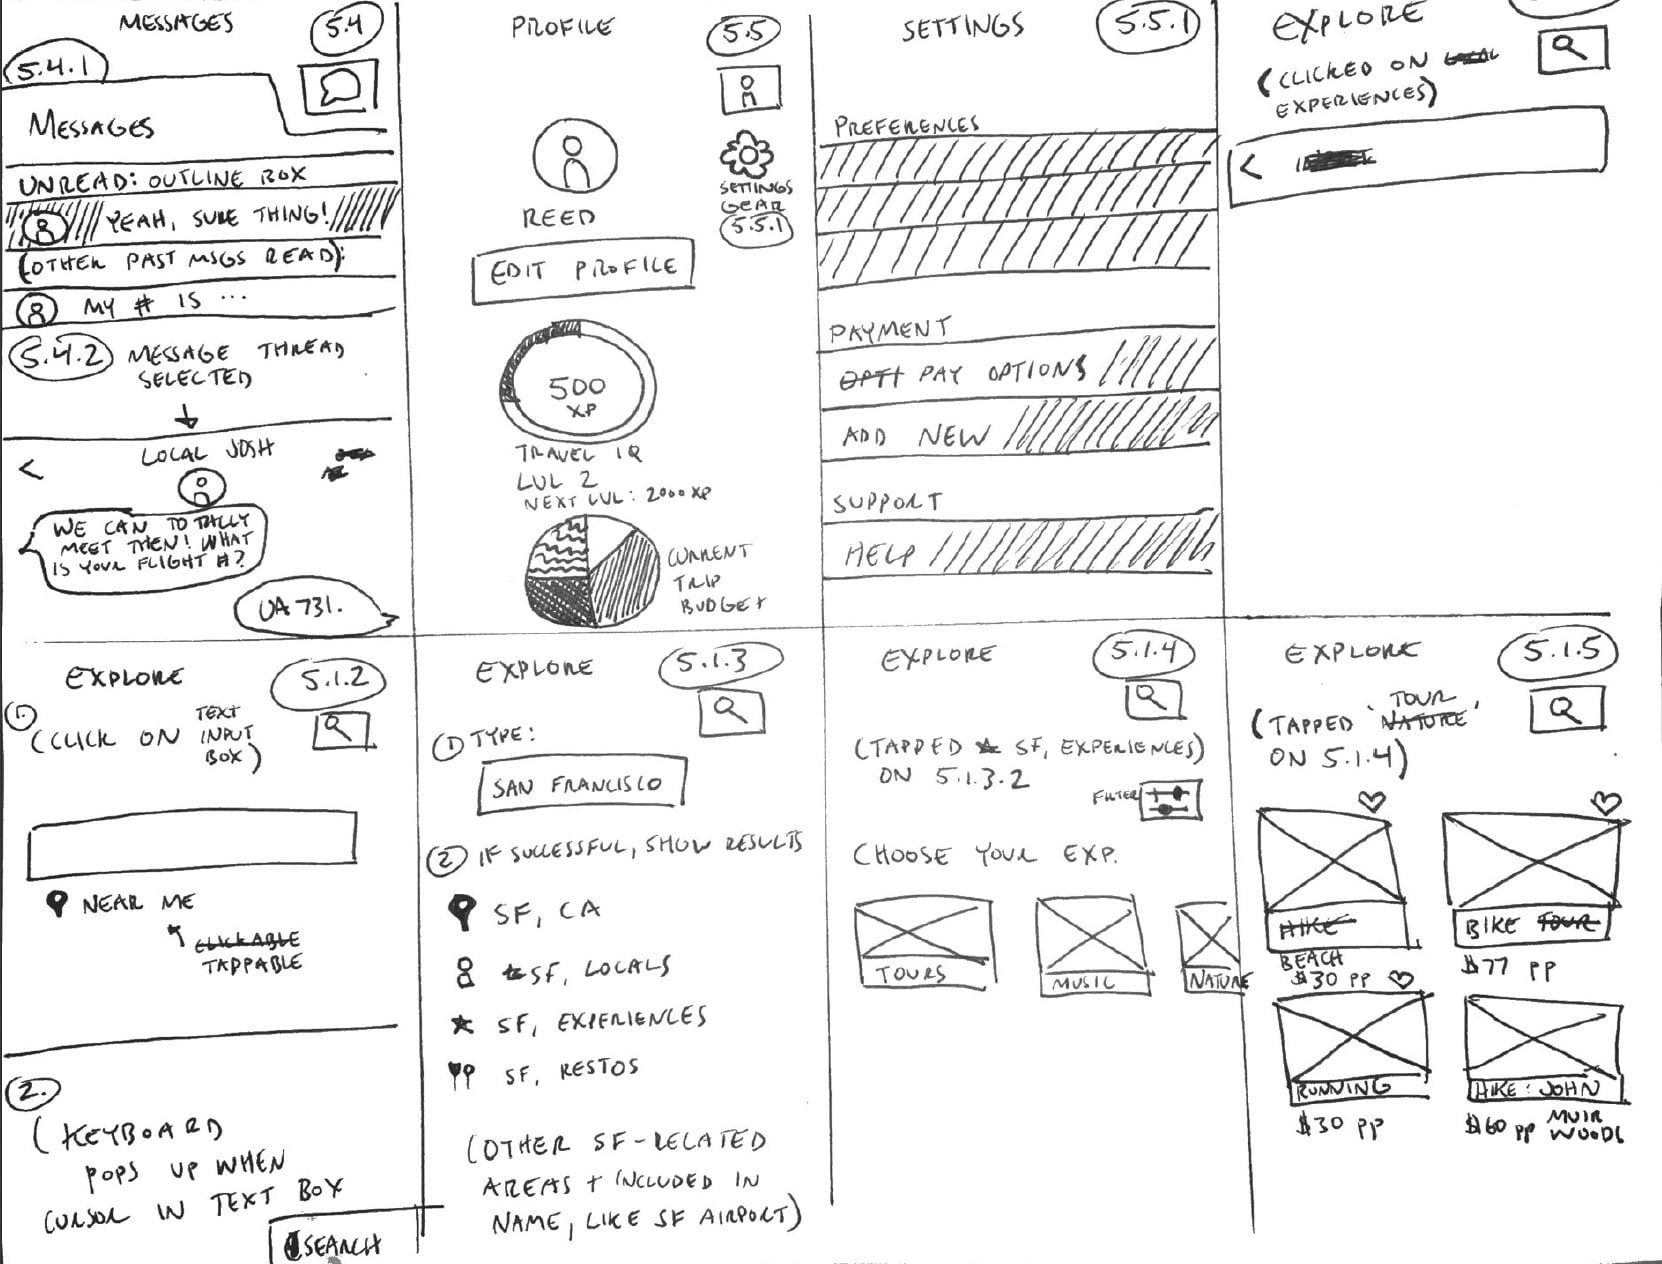 MESSAGES
5.4
5.4.1
MESSAGES
UNREAD: OUTLINE BOX
YEAH, SURE THING!
(OTHER PAST MSGS READ):
MY # IS ...
5.4.2 MESSAGE THREAD
SELECTED
<
LOCAL JOSH
WE CAN TOTALLY
MEET THEN! WHAT
IS YOUR FLIGHT #?
UA 731.
PROFILE
5.5
SETTINGS
GEAR
5.5.1
REED
EDIT PROFILE
500
XP
TRAVEL IQ
LVL 2
NEXT LVL: 2000 XP
CURRENT
TRIP
BUDGET
SETTINGS
5.5.1
PREFERENCES
PAYMENT
OPTI PAY OPTIONS
ADD NEW
SUPPORT
HELP
EXPLORE
(CLICKED ON LOCAL
EXPERIENCES)
<
EXPLORE
5.1.2
1. (CLICK ON TEXT
INPUT
BOX)
NEAR ME
CLICKABLE
TAPPABLE
2.
(KEYBOARD
POPS UP WHEN
CURSOR IN TEXT BOX
SEARCH
EXPLORE
5.1.3
1 TYPE:
SAN FRANCISCO
2 IF SUCCESSFUL, SHOW RESULTS
SF, CA
SF, LOCALS
SF, EXPERIENCES
SF, RESTOS
(OTHER SF-RELATED
AREAS + INCLUDED IN
NAME, LIKE SF AIRPORT)
EXPLORE
5.1.4
(TAPPED ★ SF, EXPERIENCES)
ON 5.1.3.2
FILTER
CHOOSE YOUR EXP.
TOURS
MUSIC
NATURE
EXPLORE
5.1.5
(TAPPED 'NATURE' TOUR
ON 5.1.4)
HIKE
BEACH
$30 PP
BIKE TOUR
$77 PP
RUNNING
$30 PP
HIKE: JOHN
MUIR
WOODS
$60 PP